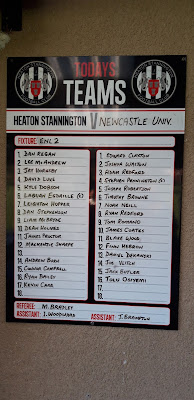 TODAYS
TEAMS
HEATON STANNINGTON V NEWCASTLE UNIV.
FIXTURE: ENL 2
1. DAN REGAN
2. LEE McANDREW
3. JAY HORNSBY
4. DAVID LUKE
5. KYLE DOBSON
6. LAUREN ESDAILLE (C)
7. LEIGHTON HOPPER
8. DAN STEPHENSON
9. LIAM McBRYDE
10. DEAN HOLMES
11. JAMES PROCTOR
12. MACKENZIE SHARPE
13.
14. ANDREW BURN
15. CONNOR CAMPBELL
16. RYAN BAILEY
17. KEVIN CARR
18.
1. EDWARD CLAYTON
2. JOSHUA WATSON
3. ADAM REDFORD
4. STEPHEN PENNINGTON (C)
5. JOSEPH ROBERTSON
6. TIMOTHY BROWNE
7. NOAH NEILL
8. RYAN REDFORD
9. TOM ROMANO
10. JAMES COATES
11. BLAKE WOOD
12. FINN HEBRON
13. DANIEL
14. JOE VEITCH
15. JACK BUTLER
16. TOLU OSIYEMI
17.
18.
REFEREE: M. BRADLEY
ASSISTANT: I. WOODWARD ASSISTANT: J. BRUNTON